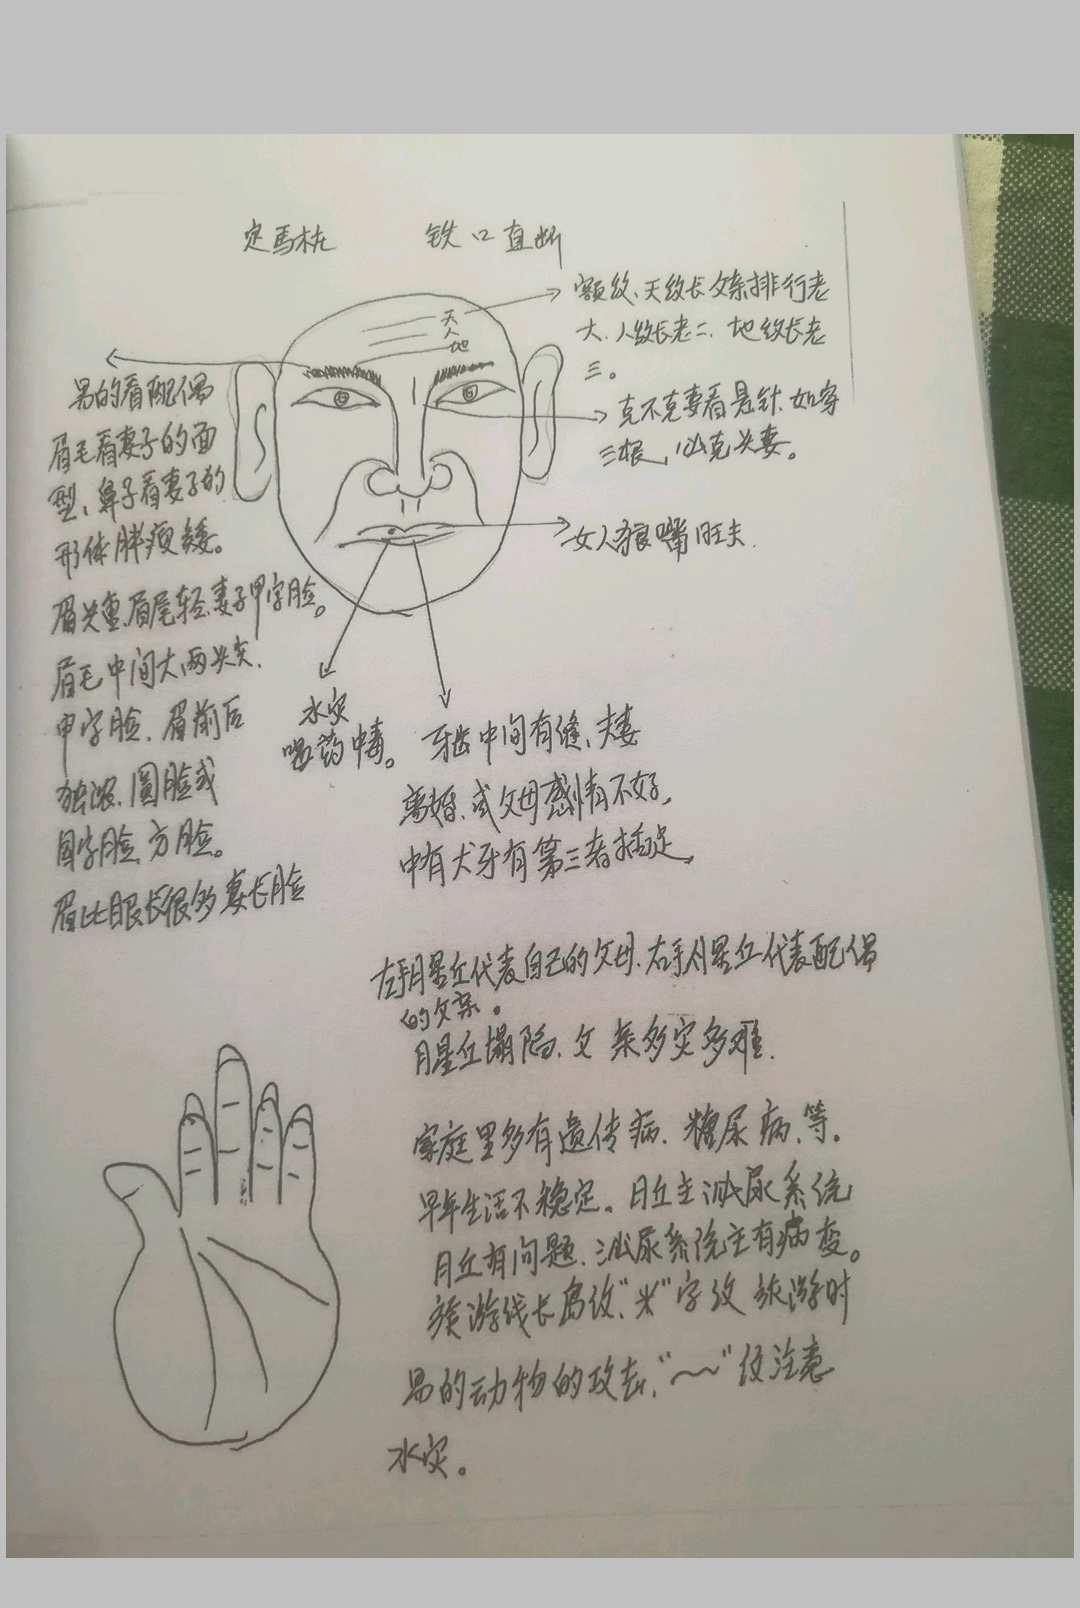 定馬桩 铁口直断
额纹、天纹长父亲排行老
大、人纹长老二、地纹长老
三。
天
人
地
克不克妻看悬针、如穿
三根,必克夫妻。
女人狼嘴旺夫.
男的看配偶
眉毛看妻子的面
型、鼻子看妻子的
形体胖瘦矮。
眉头重、眉尾轻、妻子甲字脸。
眉毛中间大、两头尖、
申字脸、眉前后
浓、圆脸或
国字脸、方脸。
眉比眼长很多妻长脸
水灾
喝药中毒。
牙齿中间有缝、夫妻
离婚、或父母感情不好,
中有犬牙有第三者插足,
左手月星丘代表自己的父母、右手月星丘代表配偶
的父亲。
月星丘塌陷、父亲多灾多难.
家庭里多有遗传病、糖尿病、等。
早年生活不稳定。月丘主泌尿系统
月丘有问题、泌尿系统主有病变。
旅游线长岛纹"米"字纹旅游时
易的动物的攻击,"~"纹注意
水灾。